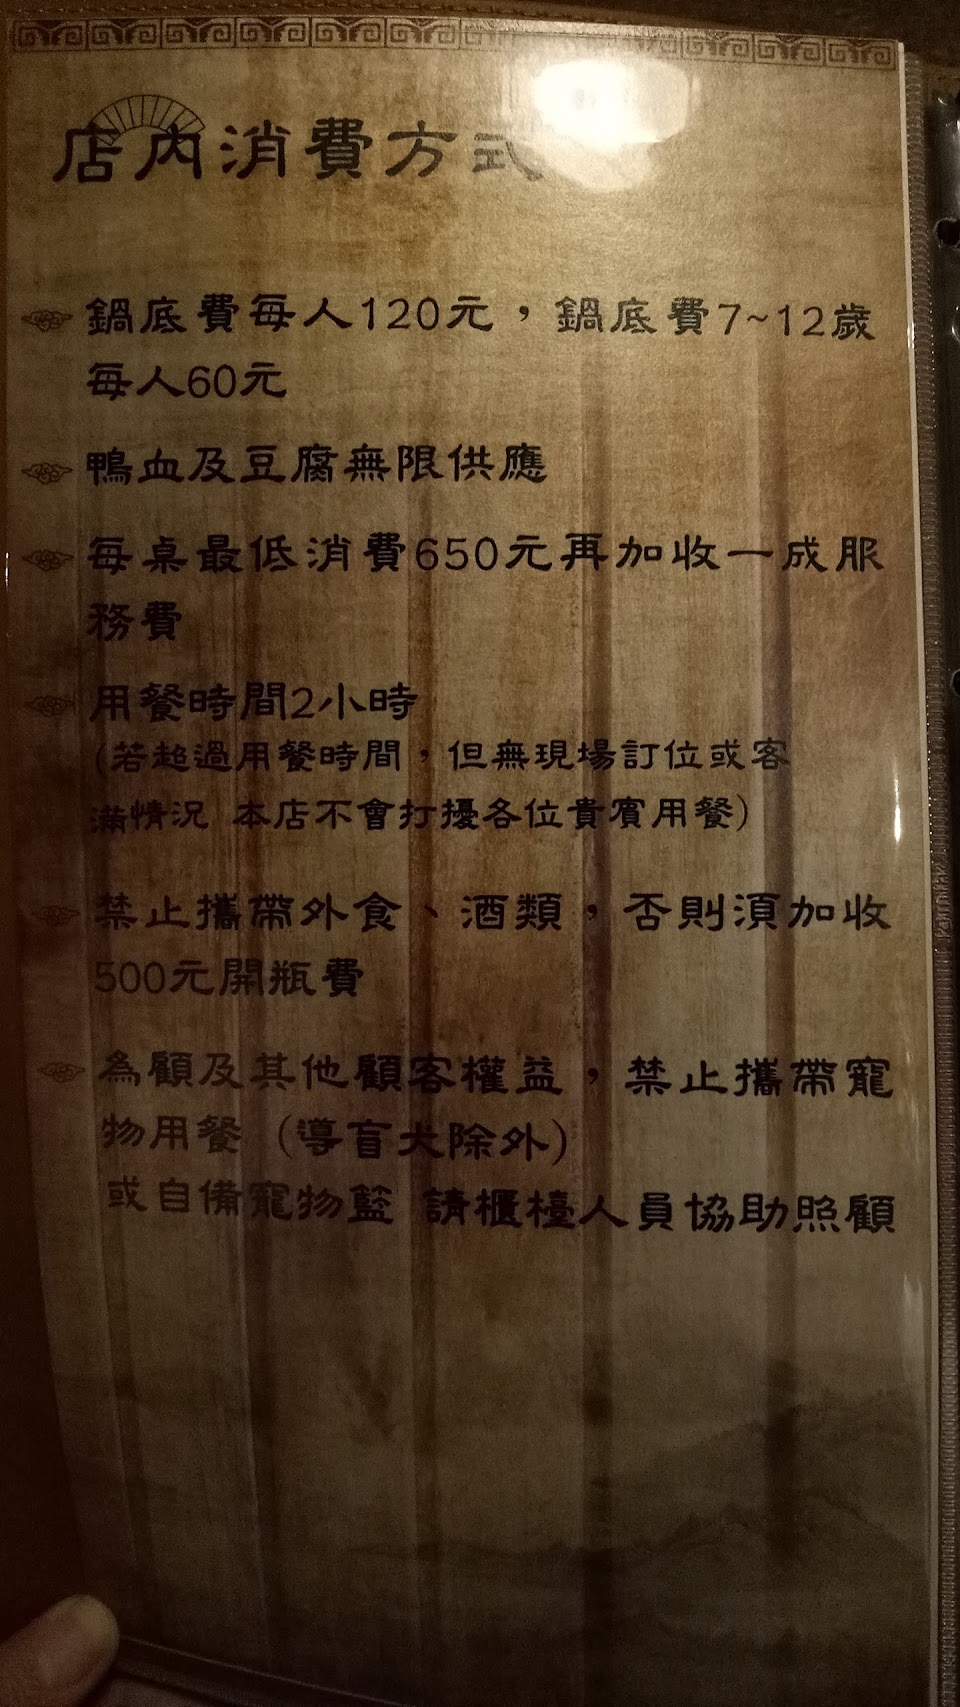 店內消費方式
鍋底費每人120元，鍋底費7~12歲
每人60元
鴨血及豆腐無限供應
每桌最低消費650元再加收一成服
務費
用餐時間2小時
(若超過用餐時間，但無現場訂位或客
滿情況 本店不會打擾各位貴賓用餐)
禁止攜帶外食、酒類，否則須加收
500元開瓶費
為顧及其他顧客權益，禁止攜帶寵
物用餐 (導盲犬除外)
或自備寵物籃 請櫃檯人員協助照顧